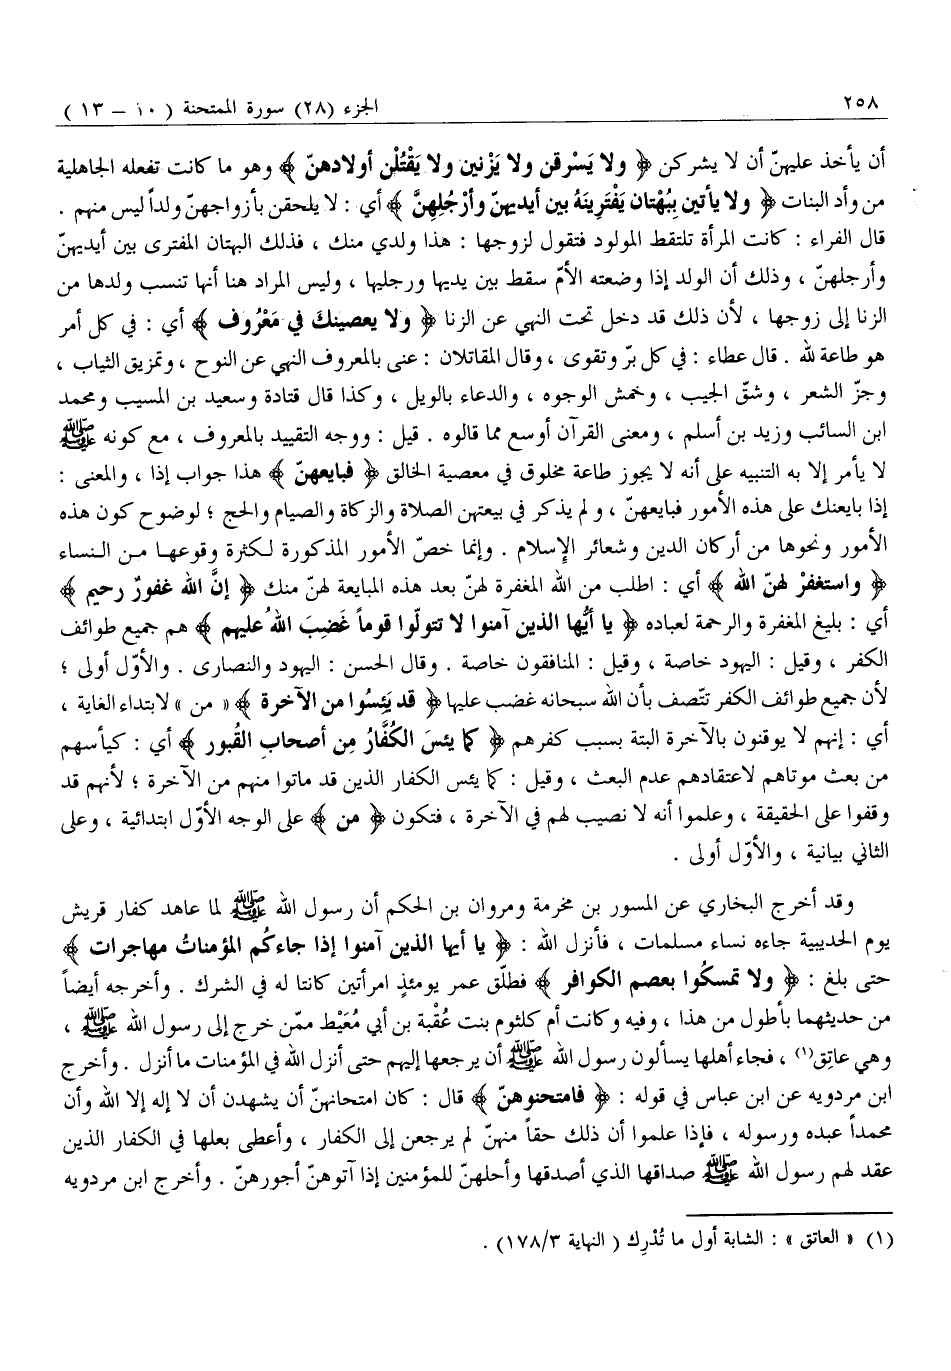 ٢٥٨
الجزء (٢٨) سورة الممتحنة ( ١٠ - ١٣ )
أن يأخذ عليهنّ أن لا يشركن ﴿ ولا يَسْرقن ولا يَزْنين ولا يَقْتُلْن أولادهنّ ﴾ وهو ما كانت تفعله الجاهلية
من وأد البنات ﴿ ولا يأتين بِبُهْتان يَفْتَرِينَهُ بين أيديهنّ وأرْجُلِهِنَّ ﴾ أي : لا يلحقن بأزواجهنّ ولداً ليس منهم .
قال الفراء : كانت المرأة تلتقط المولود فتقول لزوجها : هذا ولدي منك ، فذلك البهتان المفترى بين أيديهنّ
وأرجلهنّ ، وذلك أن الولد إذا وضعته الأمّ سقط بين يديها ورجليها ، وليس المراد هنا أنها تنسب ولدها من
الزنا إلى زوجها ، لأن ذلك قد دخل تحت النهي عن الزنا ﴿ ولا يعصينكَ في مَعْرُوف ﴾ أي : في كل أمر
هو طاعة لله . قال عطاء : في كل برّ وتقوى ، وقال المقاتلان : عنى بالمعروف النهي عن النوح ، وتمزيق الثياب ،
وجزّ الشعر ، وشقّ الجيب ، وخمش الوجوه ، والدعاء بالويل ، وكذا قال قتادة وسعيد بن المسيب ومحمد
ابن السائب وزيد بن أسلم ، ومعنى القرآن أوسع مما قالوه . قيل : ووجه التقييد بالمعروف ، مع كونه ﷺ
لا يأمر إلا به التنبيه على أنه لا يجوز طاعة مخلوق في معصية الخالق ﴿ فبايعهنّ ﴾ هذا جواب إذا ، والمعنى :
إذا بايعنك على هذه الأمور فبايعهنّ ، ولم يذكر في بيعتهن الصلاة والزكاة والصيام والحج ؛ لوضوح كون هذه
الأمور ونحوها من أركان الدين وشعائر الإسلام . وإنما خصّ الأمور المذكورة لكثرة وقوعها من النساء
﴿ واستغفرْ لهنّ الله ﴾ أي : اطلب من الله المغفرة لهنّ بعد هذه المبايعة لهنّ منك ﴿ إنَّ الله غفورٌ رحيم ﴾
أي : بليغ المغفرة والرحمة لعباده ﴿ يا أيُّها الذين آمنوا لا تتولّوا قوماً غَضِبَ اللهُ عليهم ﴾ هم جميع طوائف
الكفر ، وقيل : اليهود خاصة ، وقيل : المنافقون خاصة . وقال الحسن : اليهود والنصارى . والأوّل أولى ؛
لأن جميع طوائف الكفر تتّصف بأن الله سبحانه غضب عليها ﴿ قد يَئِسُوا من الآخرة ﴾ « من » لابتداء الغاية ،
أي : إنهم لا يوقنون بالآخرة البتة بسبب كفرهم ﴿ كما يئسَ الكُفَّارُ مِن أصحابِ القُبور ﴾ أي : كيأسهم
من بعث موتاهم لاعتقادهم عدم البعث ، وقيل : كما يئس الكفار الذين قد ماتوا منهم من الآخرة ؛ لأنهم قد
وقفوا على الحقيقة ، وعلموا أنه لا نصيب لهم في الآخرة ، فتكون ﴿ من ﴾ على الوجه الأوّل ابتدائية ، وعلى
الثاني بيانية ، والأوّل أولى .
وقد أخرج البخاري عن المسور بن مخرمة ومروان بن الحكم أن رسول الله ﷺ لما عاهد كفار قريش
يوم الحديبية جاءه نساء مسلمات ، فأنزل الله : ﴿ يا أيها الذين آمنوا إذا جاءكم المؤمناتُ مهاجرات ﴾
حتى بلغ : ﴿ ولا تمسكُوا بعصم الكوافر ﴾ فطلّق عمر يومئذٍ امرأتين كانتا له في الشرك . وأخرجه أيضاً
من حديثهما بأطول من هذا ، وفيه وكانت أم كلثوم بنت عُقْبة بن أبي مُعَيْط ممّن خرج إلى رسول الله ﷺ ،
وهي عاتِق(١) ، فجاء أهلها يسألون رسول الله ﷺ أن يرجعها إليهم حتى أنزل الله في المؤمنات ما أنزل . وأخرج
ابن مردويه عن ابن عباس في قوله : ﴿ فامتحنوهنّ ﴾ قال : كان امتحانهنّ أن يشهدن أن لا إله إلا الله وأن
محمداً عبده ورسوله ، فإذا علموا أن ذلك حقاً منهنّ لم يرجعن إلى الكفار ، وأعطى بعلها في الكفار الذين
عقد لهم رسول الله ﷺ صداقها الذي أصدقها وأحلهنّ للمؤمنين إذا آتوهنّ أجورهنّ . وأخرج ابن مردويه
(١) « العاتق » : الشابة أول ما تُدْرِك ( النهاية ١٧٨/٣) .